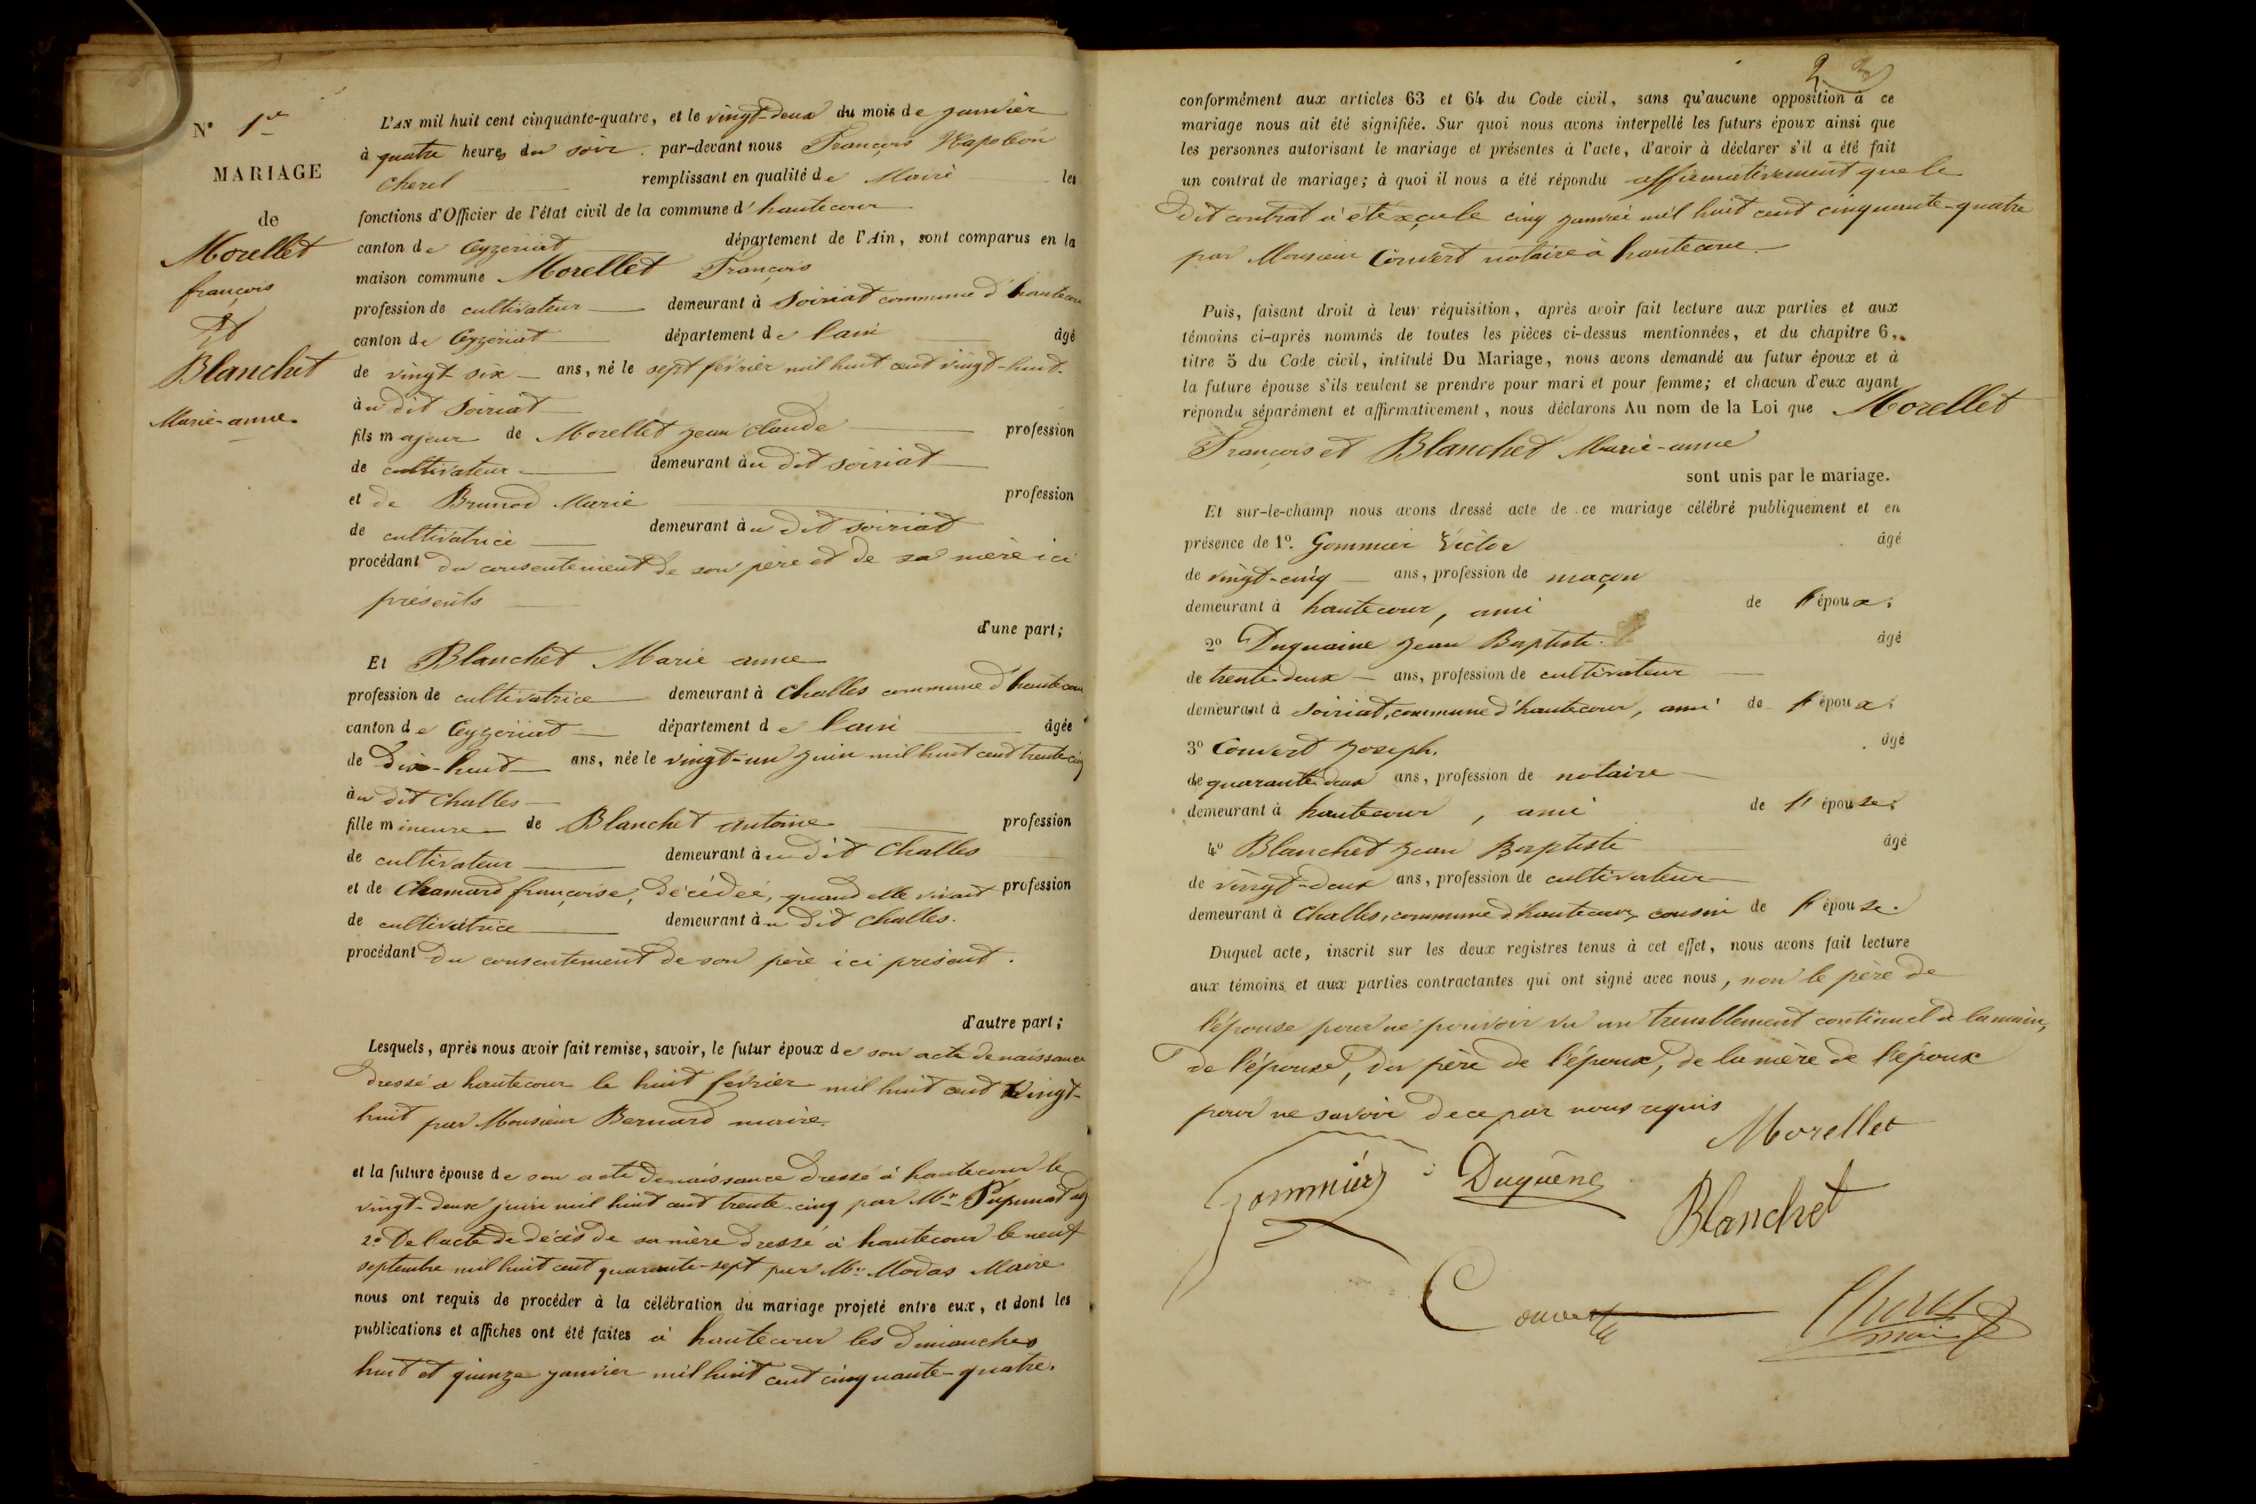 N° 1er
MARIAGE
de
Morellet
françois
Et
Blanchet
Marie-anne
L'AN mil huit cent cinquante-quatre, et le vingt-deux du mois de janvier
à quatre heures du soir par-devant nous François Napoléon
Cherel remplissant en qualité de Maire les
fonctions d'Officier de l'état civil de la commune d'hautecour
canton de Ceyzeriat département de l'Ain, sont comparus en la
maison commune Morellet François
profession de cultivateur demeurant à Soiriat commune d'hautecour
canton de Ceyzeriat département de l'ain âgé
de vingt six ans, né le sept février mil huit cent vingt-huit
àu dit Soiriat
fils majeur de Morellet jean claude profession
de cultivateur demeurant àu dit soiriat
et de Brunod Marie profession
de cultivatrice demeurant àu dit soiriat
procédant du consentement de son père et de sa mère ici
présents
d'une part;
Et Blanchet Marie anne
profession de cultivatrice demeurant à Challes commune d'hautecour
canton de Ceyzeriat département de l'ain âgée
de Dix-huit ans, née le vingt-un juin mil huit cent trente-cinq
àu dit Challes
fille mineure de Blanchet antoine profession
de cultivateur demeurant àu dit Challes
et de Chamard françoise, décédée, quand elle vivait profession
de cultivatrice demeurant àu dit Challes.
procédant du consentement de son père ici présent.
d'autre part;
Lesquels, après nous avoir fait remise, savoir, le futur époux de son acte de naissance
dressé a hautecour le huit février mil huit cent vingt-
huit par Monsieur Bernard maire.
et la future épouse de son acte de naissance dressé à hautecour le
vingt-deux juin mil huit cent trente-cinq par Mr.
2° De l'acte de décès de sa mère dressé à hautecour le neuf
septembre mil huit cent quarante-sept par Mr. Modas Maire
nous ont requis de procéder à la célébration du mariage projeté entre eux, et dont les
publications et affiches ont été faites à hautecour les Dimanches
huit et quinze janvier mil huit cent cinquante-quatre.
2
conformément aux articles 63 et 64 du Code civil, sans qu'aucune opposition à ce
mariage nous ait été signifiée. Sur quoi nous avons interpellé les futurs époux ainsi que
les personnes autorisant le mariage et présentes à l'acte, d'avoir à déclarer s'il a été fait
un contrat de mariage; à quoi il nous a été répondu affirmativement que le
dit contrat a été reçu le cinq janvier mil huit cent cinquante-quatre
par Monsieur Convert notaire à hautecour.
Puis, faisant droit à leur réquisition, après avoir fait lecture aux parties et aux
témoins ci-après nommés de toutes les pièces ci-dessus mentionnées, et du chapitre 6,
titre 5 du Code civil, intitulé Du Mariage, nous avons demandé au futur époux et à
la future épouse s'ils veulent se prendre pour mari et pour femme; et chacun d'eux ayant
répondu séparément et affirmativement, nous déclarons Au nom de la Loi que Morellet
François et Blanchet Marie-anne
sont unis par le mariage.
Et sur-le-champ nous avons dressé acte de ce mariage célébré publiquement et en
présence de 1°. Gommier Victor âgé
de vingt-cinq ans, profession de maçon
demeurant à hautecour, ami de l'époux;
2° Duquaine jean Baptiste. âgé
de trente-deux ans, profession de cultivateur
demeurant à Soiriat, commune d'hautecour, ami de l'époux;
3° Convert joseph. âgé
de quarante deux ans, profession de notaire
demeurant à hautecour, ami de l'épouse;
4° Blanchet jean Baptiste âgé
de vingt-deux ans, profession de cultivateur
demeurant à Challes, commune d'hautecour, cousin de l'épouse.
Duquel acte, inscrit sur les deux registres tenus à cet effet, nous avons fait lecture
aux témoins et aux parties contractantes qui ont signé avec nous, non le père de
l'épouse pour ne pouvoir vu un tremblement continuel à la main,
de l'épouse, du père de l'époux, de la mère de l'époux
pour ne savoir de ce par nous requis
Morellet
Gommier Duquêne
Blanchet
Convert Cherel
maire